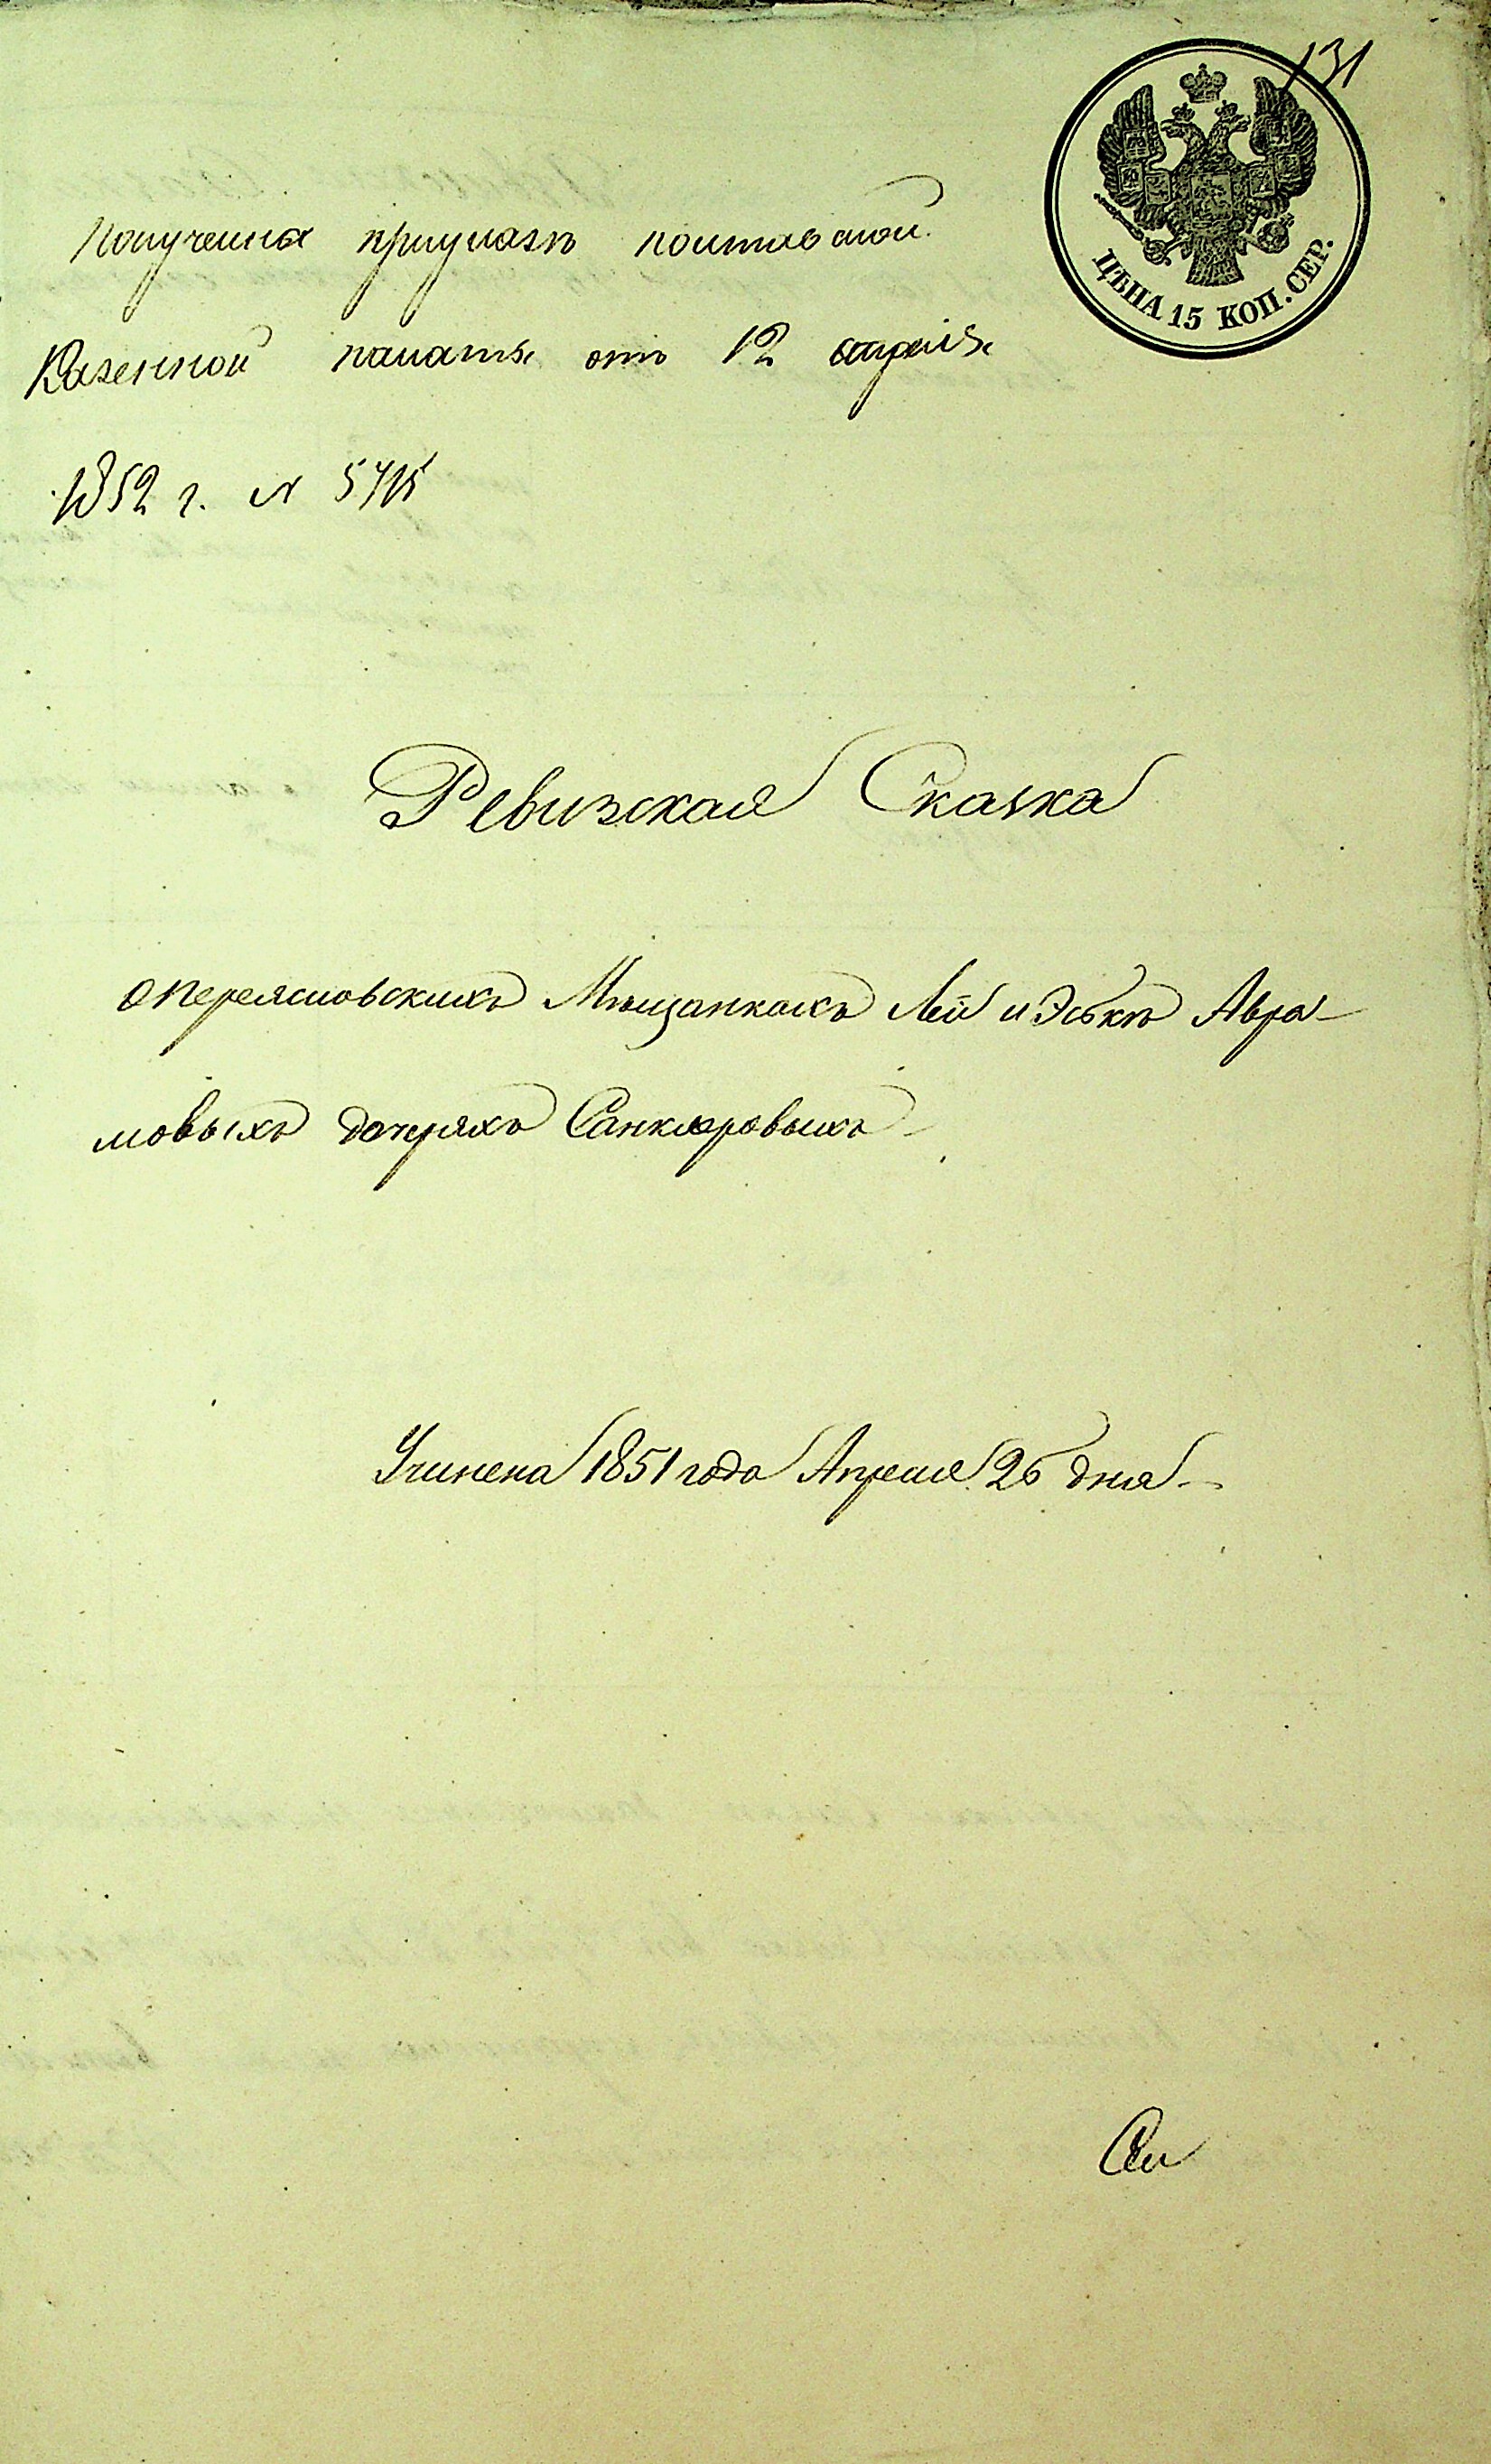 131
ЦѢНА 15 КОП. СЕР.
Получена приуказѣ полтавской
Казенной палаты отъ 12 апреля
1852 г. №
Ревизская Сказка
о переясловскихъ Мѣщанкахъ Леи и Эськѣ Авра-
мовыхъ дочеряхъ Санкляровыхъ
Учинена 1851 года Апреля 26 дня